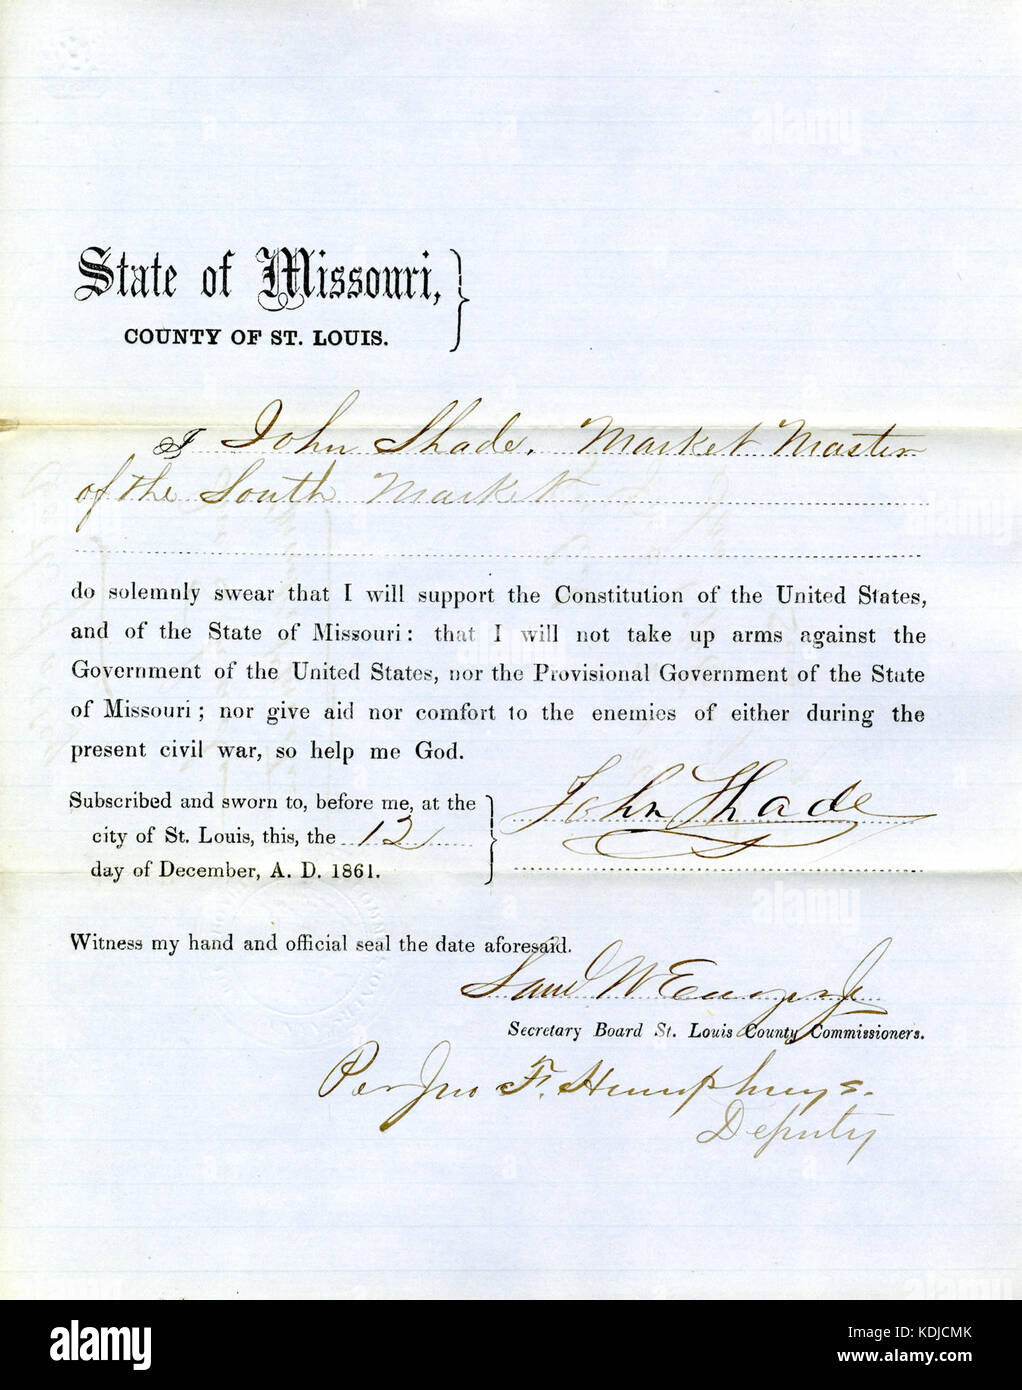 State of Missouri,
COUNTY OF ST. LOUIS.
I John Shade, Market Master
of the South Market
do solemnly swear that I will support the Constitution of the United States,
and of the State of Missouri: that I will not take up arms against the
Government of the United States, nor the Provisional Government of the State
of Missouri; nor give aid nor comfort to the enemies of either during the
present civil war, so help me God.
Subscribed and sworn to, before me, at the
city of St. Louis, this, the 12
day of December, A. D. 1861.
John Shade
Witness my hand and official seal the date aforesaid.
Saml W Eager Jr
Secretary Board St. Louis County Commissioners.
Per Jno F. Humphreys.
Deputy
alamy
Image ID: KDJCMK
www.alamy.com